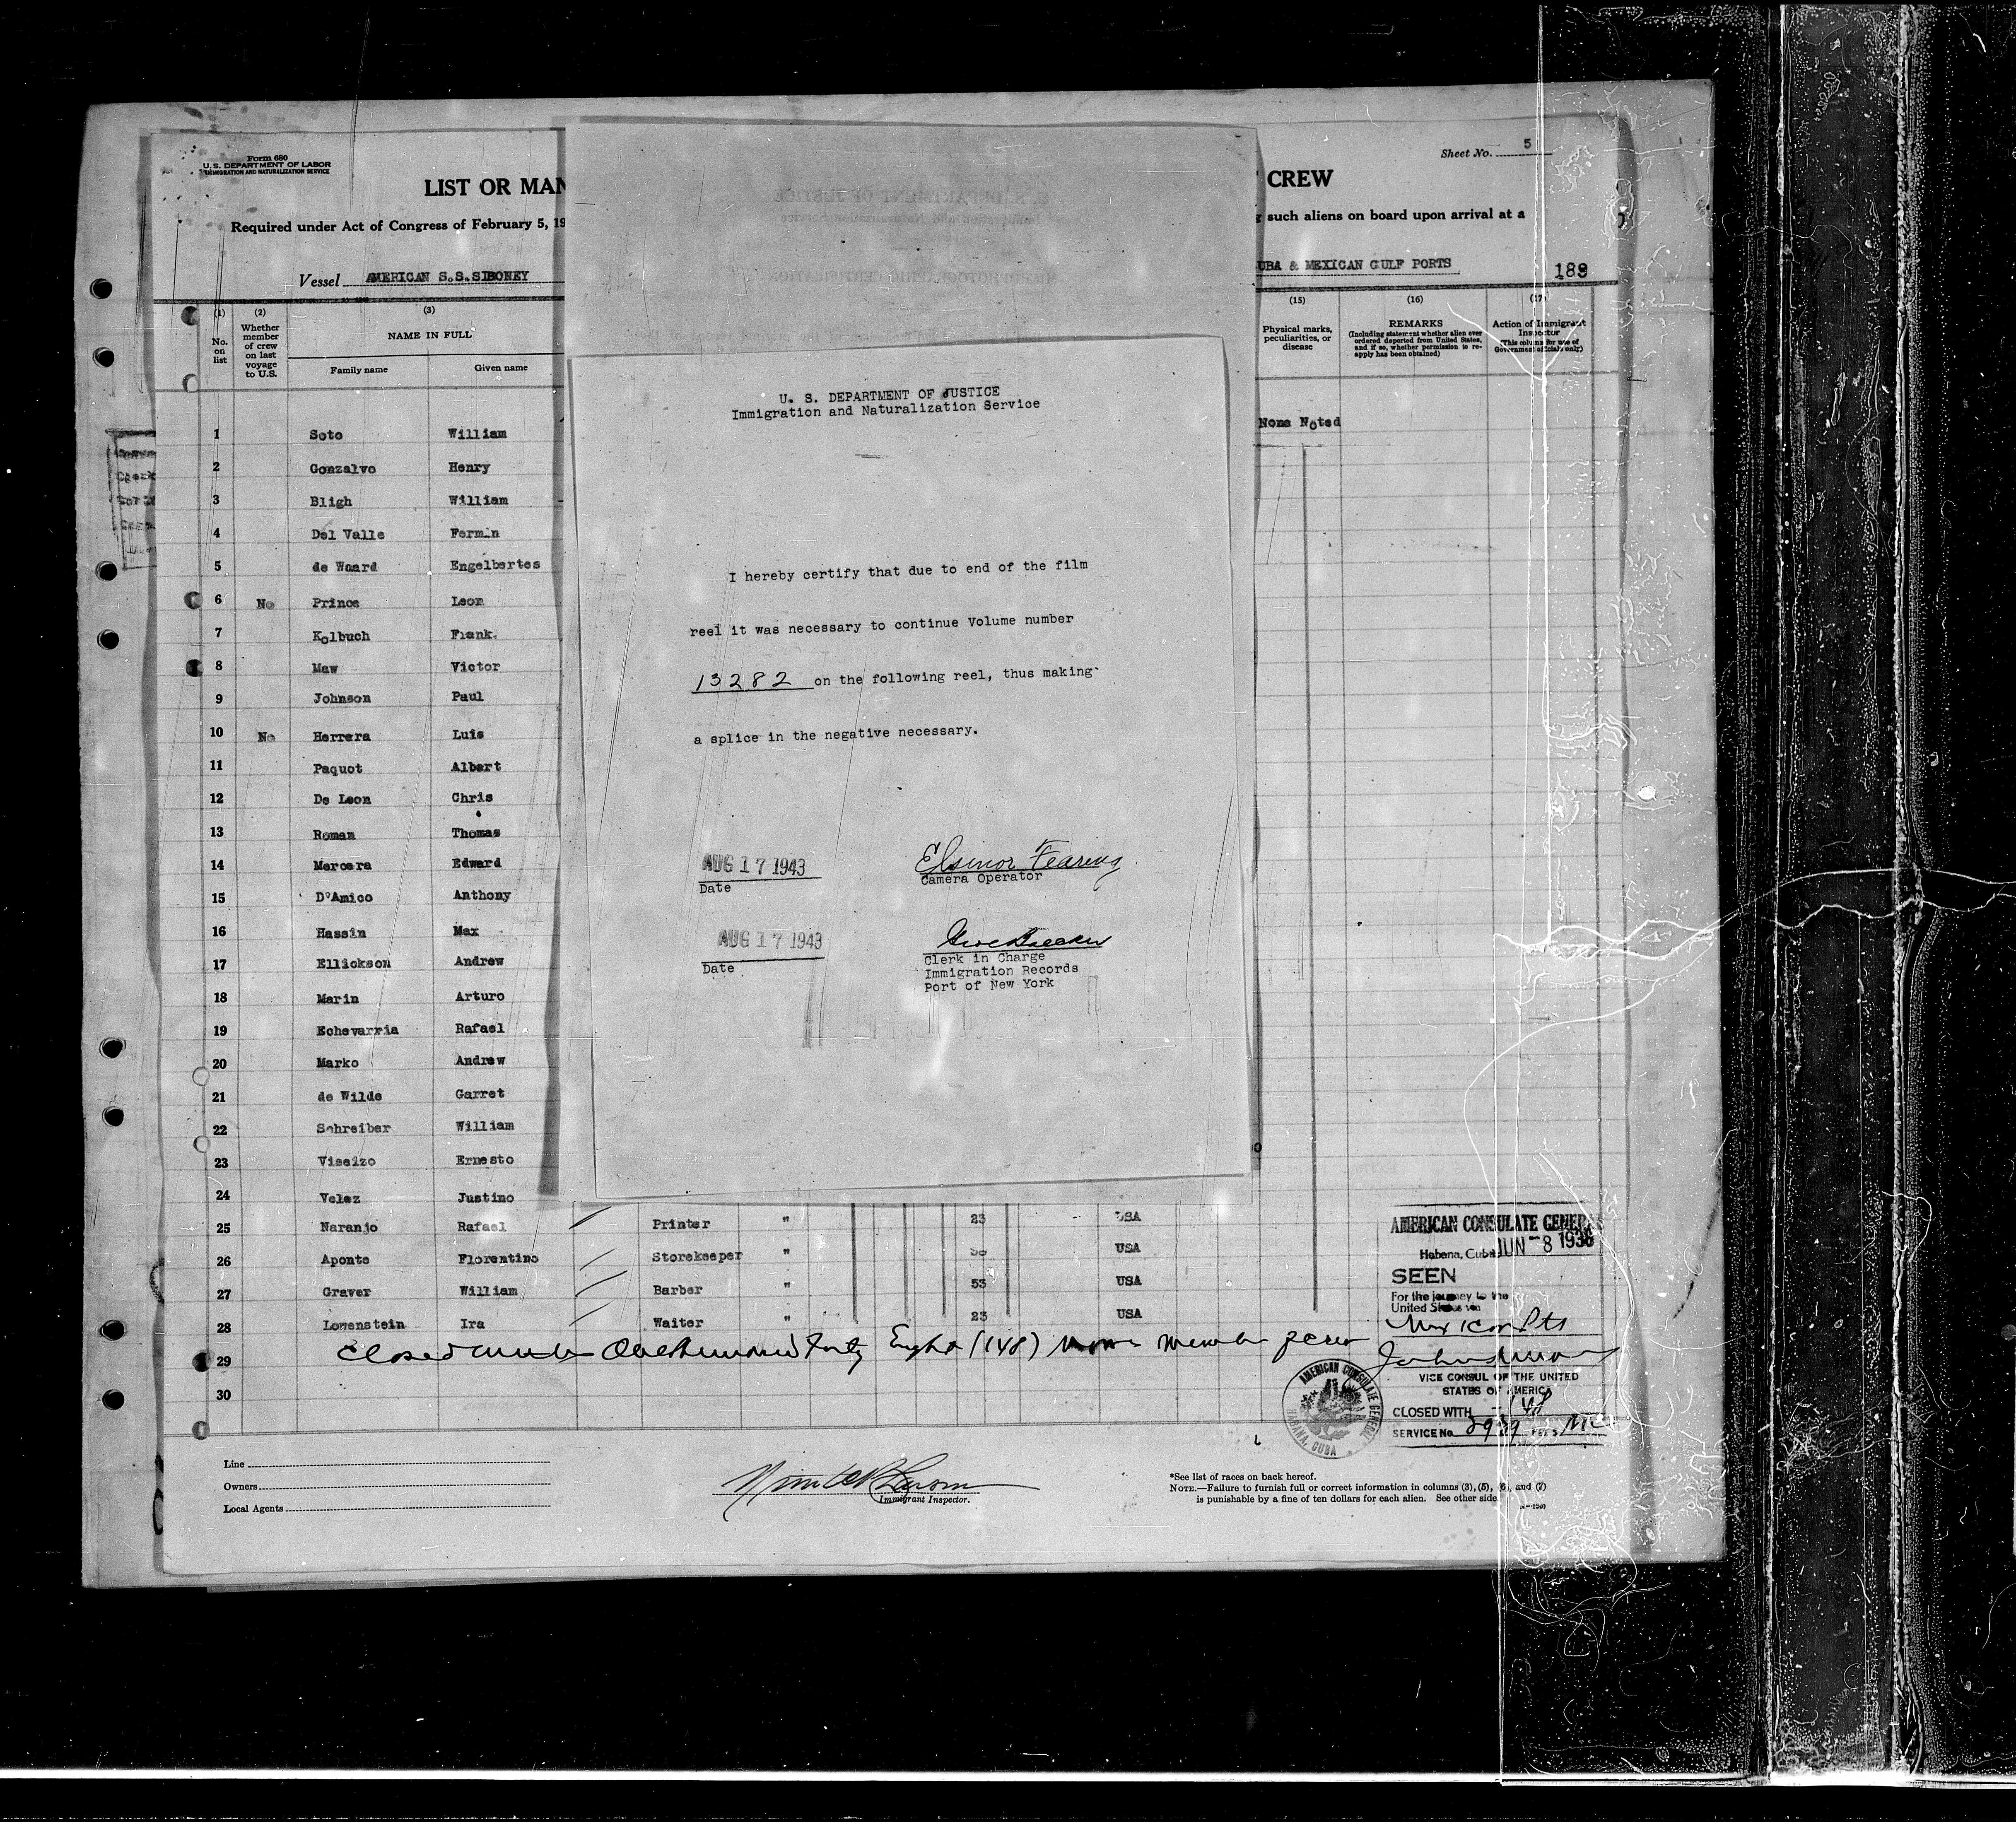 Form 680
U. S. DEPARTMENT OF LABOR
IMMIGRATION AND NATURALIZATION SERVICE
Sheet No. 5
LIST OR MAN
CREW
Required under Act of Congress of February 5, 19
such aliens on board upon arrival at a
Vessel AMERICAN S.S.SIBONEY
UBA & MEXICAN GULF PORTS
189
(1) (2) (3) (15) (16) (17)
No. on list
Whether member of crew on last voyage to U.S.
NAME IN FULL
Family name Given name
Physical marks, peculiarities, or disease
REMARKS
(Including statement whether alien ever
ordered deported from United States,
and if so, whether permission to re-
apply has been obtained)
Action of Immigrant
Inspector
(This column for use of
Government officials only)
None Noted
1 Soto William
2 Gonzalvo Henry
3 Bligh William
4 Del Valle Fermin
5 de Waard Engelbertes
6 No Prince Leon
7 Kolbuch Frank.
8 Maw Victor
9 Johnson Paul
10 No Herrera Luis
11 Paquot Albert
12 De Leon Chris
13 Roman Thomas
14 Mercera Edward
15 D'Amico Anthony
16 Hassin Max
17 Ellickson Andrew
18 Marin Arturo
19 Echevarria Rafael
20 Marko Andrew
21 de Wilde Garret
22 Schreiber William
23 Viseizo Ernesto
24 Velez Justino
25 Naranjo Rafael Printer " 23 USA
26 Aponte Florentino Storekeeper " USA
27 Graver William Barber " 53 USA
28 Lowenstein Ira Waiter " 23 USA
29 Closed One Hundred Forty Eight (148) member
30
U. S. DEPARTMENT OF JUSTICE
Immigration and Naturalization Service
I hereby certify that due to end of the film
reel it was necessary to continue Volume number
13282 on the following reel, thus making
a splice in the negative necessary.
AUG 17 1943
Date
Elsinor Fearing
Camera Operator
AUG 17 1943
Date
Clerk in Charge
Immigration Records
Port of New York
AMERICAN CONSULATE GENERAL
Habana, Cuba JUN -8 1938
SEEN
For the journey to the
United States via
VICE CONSUL OF THE UNITED
STATES OF AMERICA
CLOSED WITH 148
SERVICE No. 2939
AMERICAN CONSULATE GENERAL
HABANA, CUBA
Line
Owners
Local Agents
Immigrant Inspector.
*See list of races on back hereof.
NOTE.—Failure to furnish full or correct information in columns (3), (5), (6), and (7)
is punishable by a fine of ten dollars for each alien. See other side.